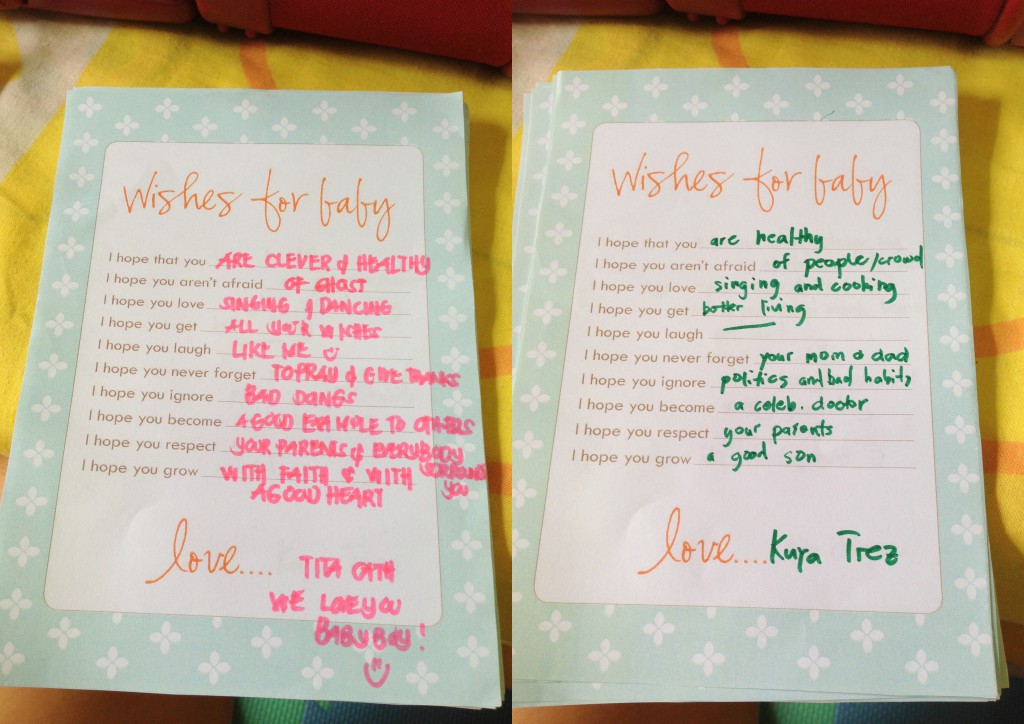 wishes for baby
I hope that you ARE CLEVER & HEALTHY
I hope you aren't afraid OF GHOST
I hope you love SINGING & DANCING
I hope you get ALL YOUR WISHES
I hope you laugh LIKE ME
I hope you never forget TO PRAY & GIVE THANKS
I hope you ignore BAD DANGS
I hope you become A GOOD EXAMPLE TO OTHERS
I hope you respect YOUR PARENTS & EVERYBODY
SORROUND YOU
I hope you grow WITH FAITH & WITH
A GOOD HEART
love.... TITA CATH
WE LOVE YOU
BABY BOY!
wishes for baby
I hope that you are healthy
I hope you aren't afraid of people/crowd
I hope you love singing and cooking
I hope you get better living
I hope you laugh
I hope you never forget your mom & dad
I hope you ignore politics and bad habits
I hope you become a celeb. doctor
I hope you respect your parents
I hope you grow a good son
love.... Kuya Trez